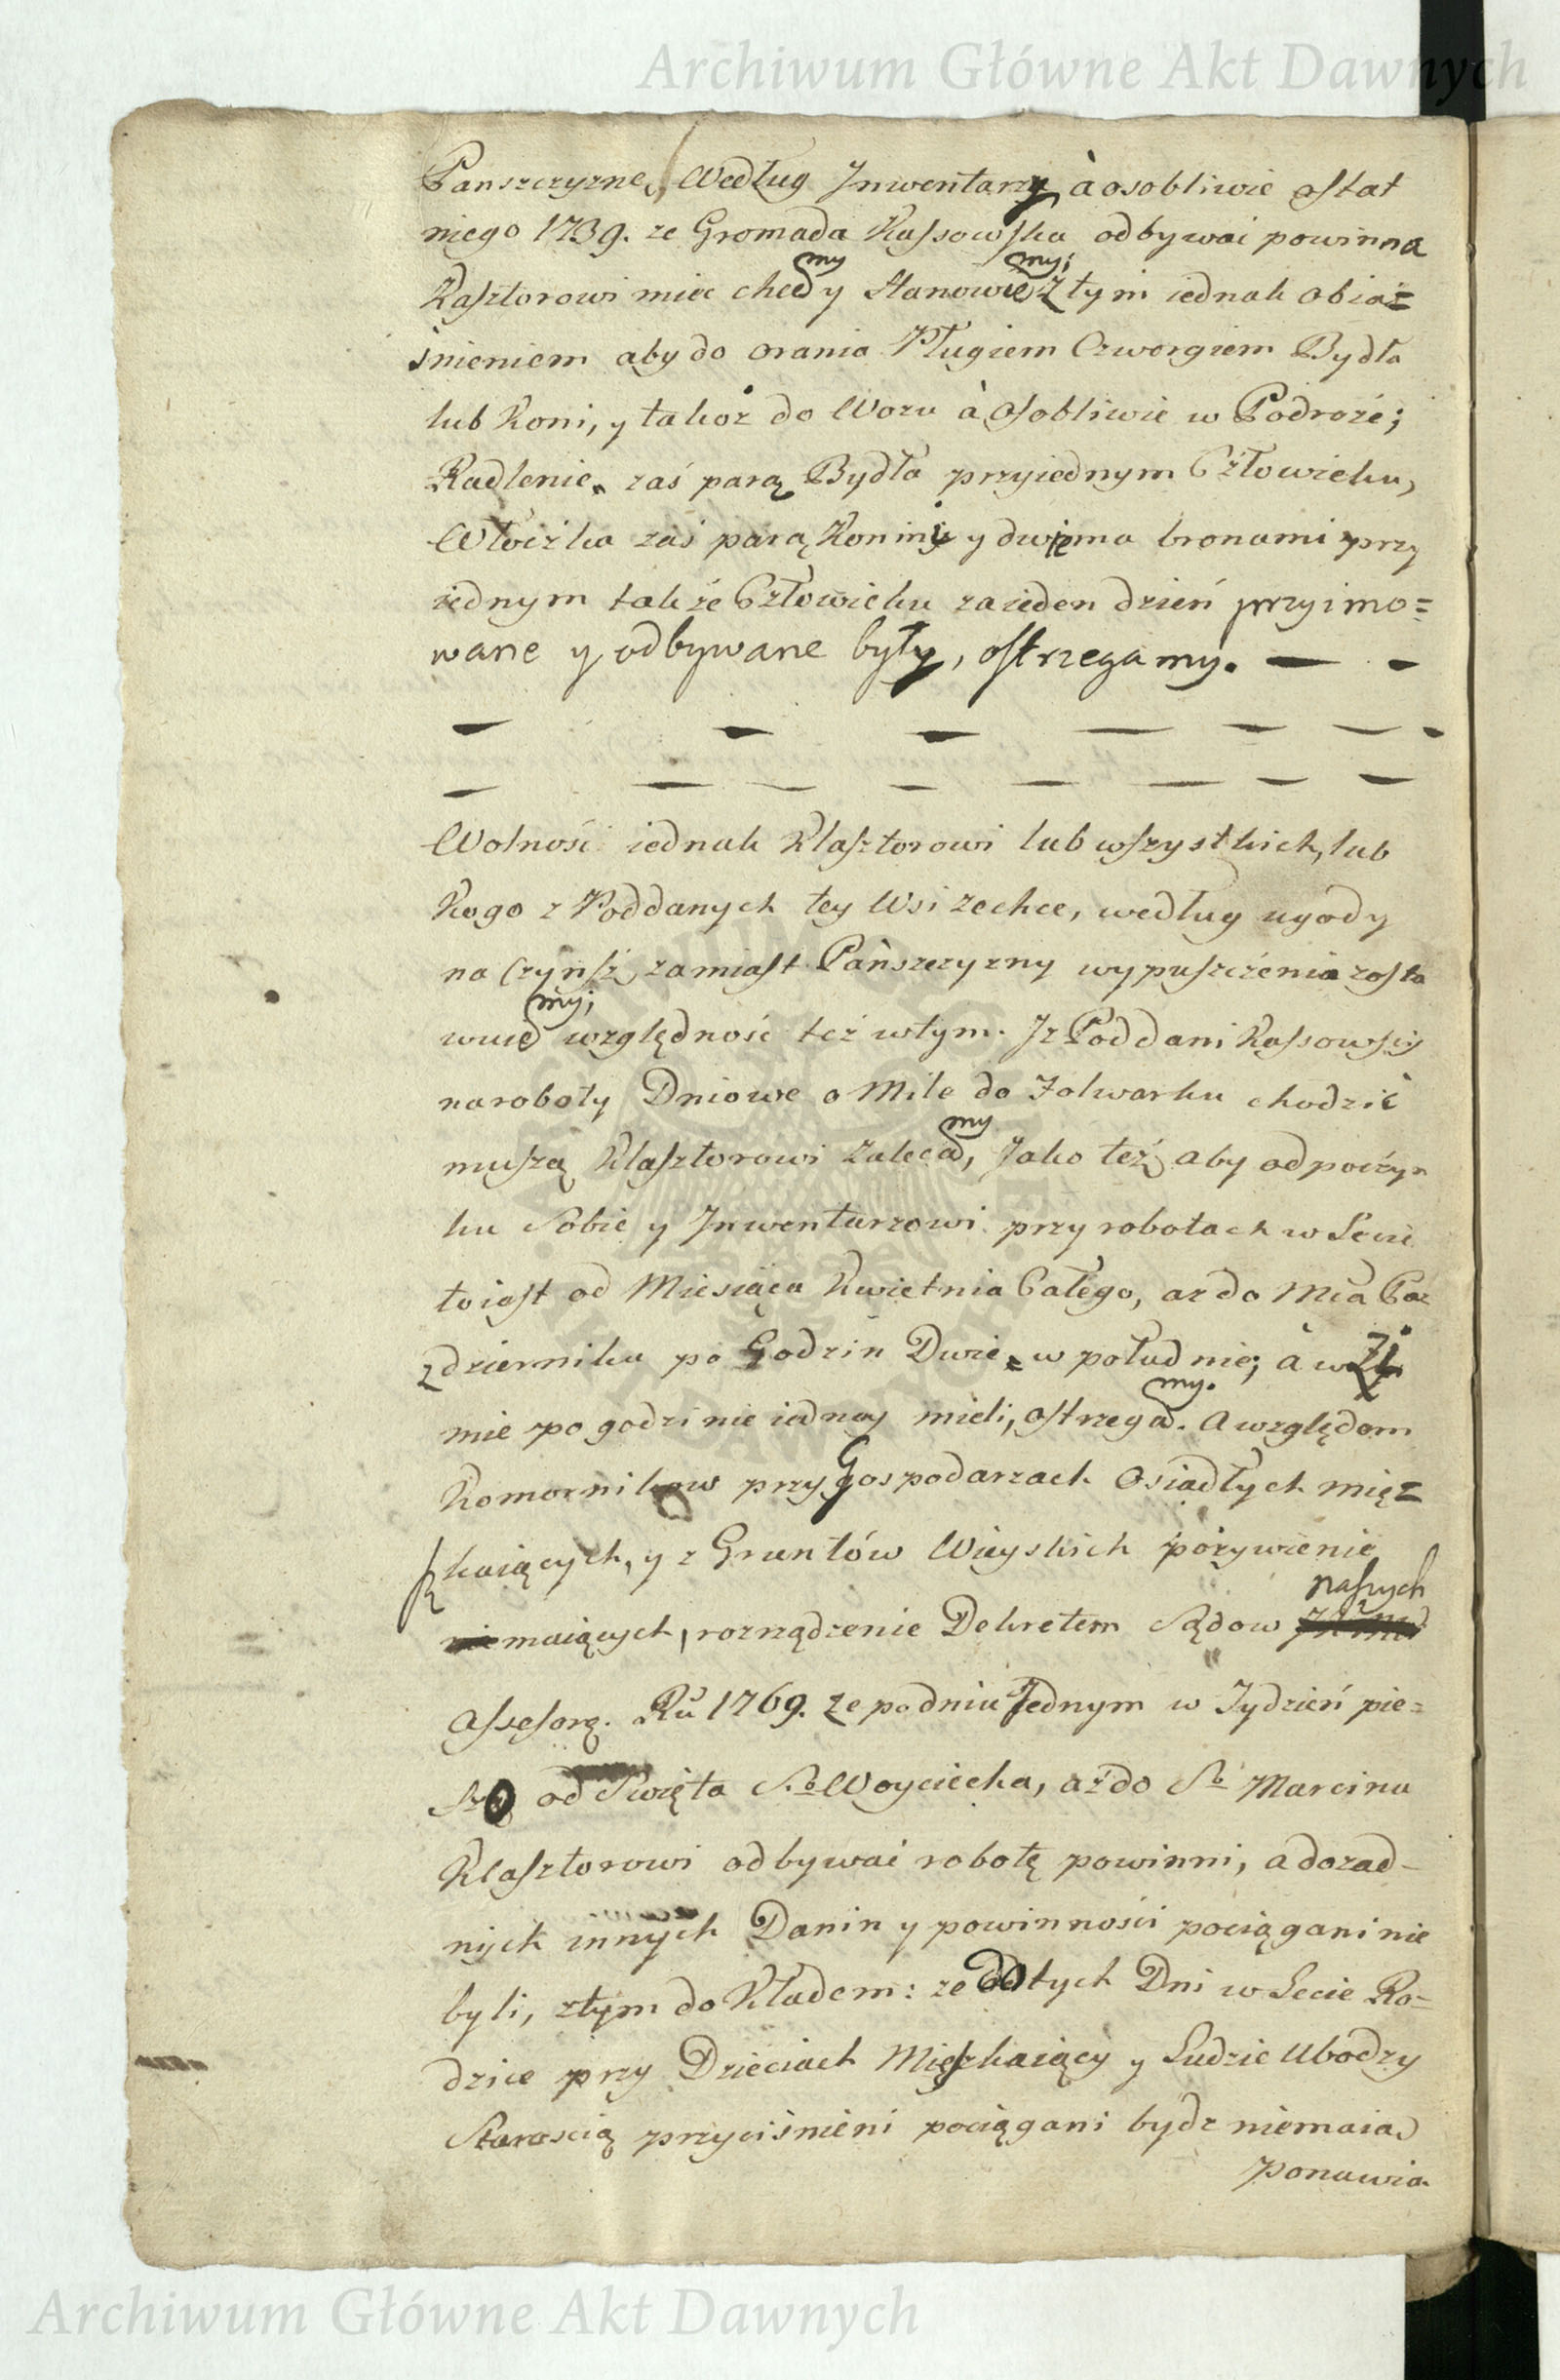 Archiwum Główne Akt Dawnych
Panszczyznę, Według Jnwentarzy à osobliwie ostat
niego 1739. ze Gromada Kassowska odbywać powinna
my my;
Klasztorowi mieć chcę y stanowię z tym iednak obia=
śnieniem aby do orania Pługiem Czworgiem Bydła
lub Koni, y takoż do Wozu à osobliwie w Podroże;
Radlenie zaś parą Bydła przyiednym Człowieku,
Włoczka zaś parą Konimi y dwiema bronami przy
iednym także Człowieku zaieden dzień przyimo=
wane y odbywane były, ostrzegamy.
Wolność iednak Klasztorowi lub wszystkich, lub
Kogo z Poddanych tey Wsi zechce, według ugody
na Czynsz, zamiast Pańszczyzny wypuszczenia zosta
my;
wuię względność też wtym. Jż Poddani Kassowscy
naroboty Dniowe o Mile do Folwarku chodzić
my
muszą Klasztorowi zaleca, Jako też aby odpoczyn
ku Sobie y Jnwentarzowi przy robotach w Lecie
toiest od Miesiąca Kwietnia Całego, aż do Mca Paź
dziernika po Godzin Dwie w południe; à w Zi
my.
mie po godzinie iedney mieli, ostrzega. A względem
Komornikow przy Gospodarzach Osiadłych mię=
szkaiących, y z Gruntów Wieyskich pożywienie
naszych
maiących, rozrządzenie Dekretem Sądow
Assesorą. Ru 1769. ze podniu Jednym w Tydzień pie=
szo od Swięta So Woyciecha, aż do So Marcina
Klasztorowi odbywać robotę powinni, a do zad-
nych innych Danin y powinności pociągani nie
byli, ztym do Kładem: ze od tych Dni w Lecie Ro=
dzice przy Dzieciach Mięszkaiący y Ludzie Ubodzy
Starością przyciśnieni pociągani bydz niemaią
ponawia
Archiwum Główne Akt Dawnych